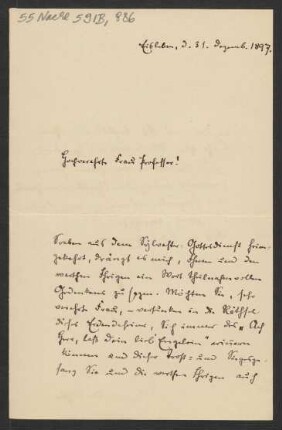 55 Nachl 59/B, 836
Eisleben, d. 31. Dezemb. 1897.
Hochverehrte Frau Professor!
Soeben aus dem Sylvester-Gottesdienst heim-
gekehrt, drängt es mich, Ihnen und den
werthen Ihrigen ein Wort theilnahmvollen
Gedenkens zu sagen. Möchten Sie, sehr
verehrte Frau, in d. Räthsel
dieses Erdendaseins, Sich immer des „Ach
Herr, laß dein lieb' Engelein" erinnern
können und dieser Trost- und Siegesge-
sang Sie und die werthen Ihrigen auch